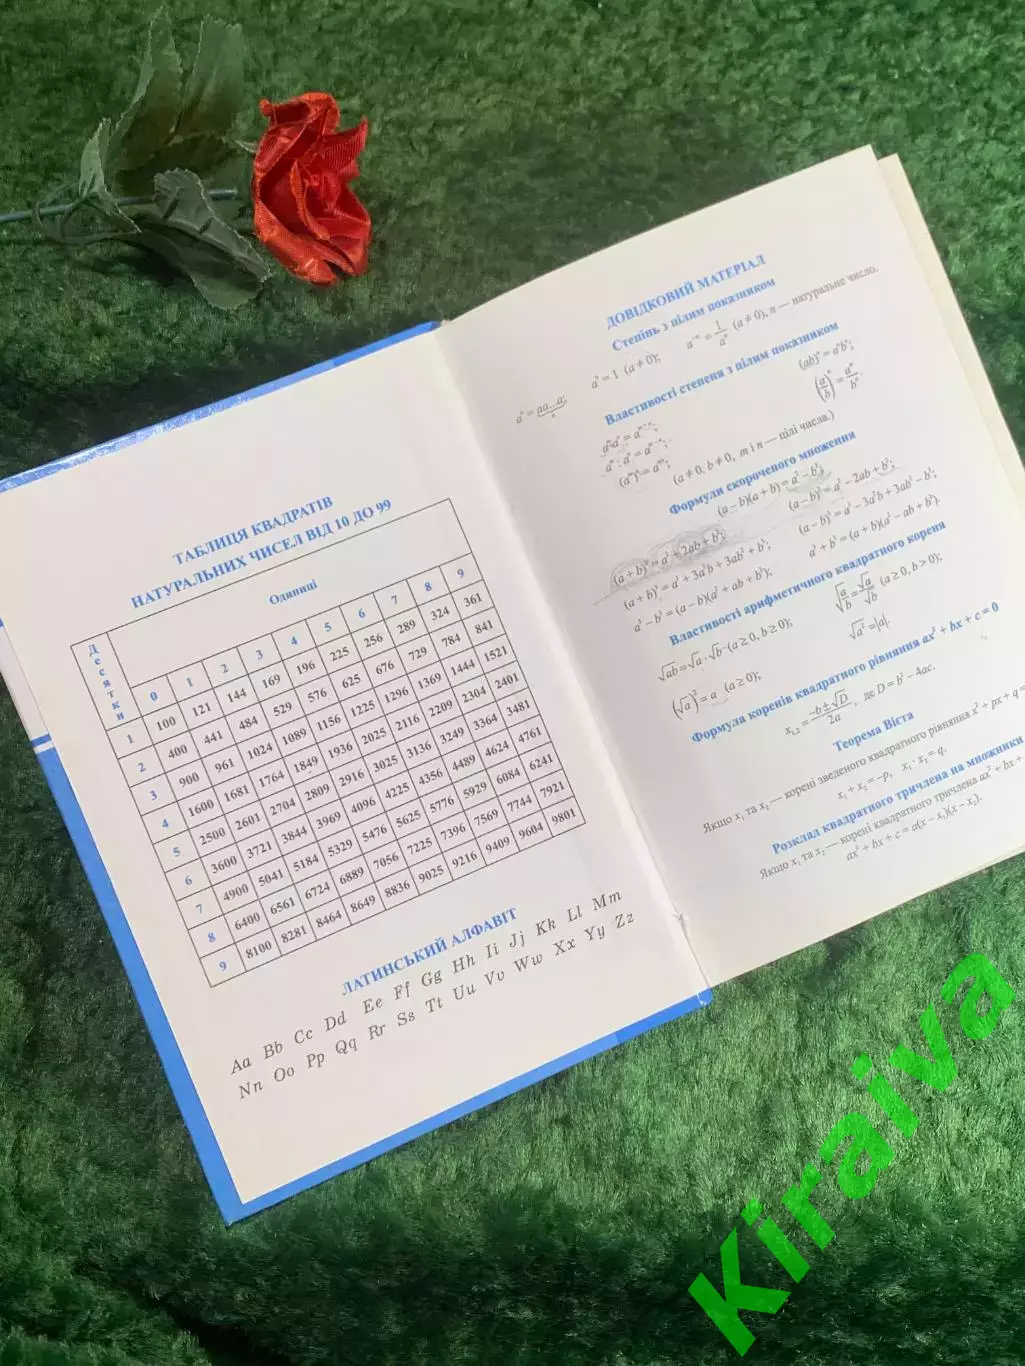 ТАБЛИЦЯ КВАДРАТІВ
НАТУРАЛЬНИХ ЧИСЕЛ ВІД 10 ДО 99
Десятки
Одиниці
0 1 2 3 4 5 6 7 8 9
1 100 121 144 169 196 225 256 289 324 361
2 400 441 484 529 576 625 676 729 784 841
3 900 961 1024 1089 1156 1225 1296 1369 1444 1521
4 1600 1681 1764 1849 1936 2025 2116 2209 2304 2401
5 2500 2601 2704 2809 2916 3025 3136 3249 3364 3481
6 3600 3721 3844 3969 4096 4225 4356 4489 4624 4761
7 4900 5041 5184 5329 5476 5625 5776 5929 6084 6241
8 6400 6561 6724 6889 7056 7225 7396 7569 7744 7921
9 8100 8281 8464 8649 8836 9025 9216 9409 9604 9801
ЛАТИНСЬКИЙ АЛФАВІТ
Aa Bb Cc Dd Ee Ff Gg Hh Ii Jj Kk Ll Mm
Nn Oo Pp Qq Rr Ss Tt Uu Vv Ww Xx Yy Zz
ДОВІДКОВИЙ МАТЕРІАЛ
Степінь з цілим показником
a⁰ = 1 (a ≠ 0); a⁻ⁿ = 1/aⁿ (a ≠ 0), n — натуральне число.
Властивості степеня з цілим показником
(ab)ⁿ = aⁿbⁿ;
(a/b)ⁿ = aⁿ/bⁿ.
(a ≠ 0, b ≠ 0, m і n — цілі числа.)
Формули скороченого множення
(a – b)(a + b) = a² – b²;
(a + b)² = a² + 2ab + b²; (a – b)² = a² – 2ab + b²;
(a + b)³ = a³ + 3a²b + 3ab² + b³; (a – b)³ = a³ – 3a²b + 3ab² – b³;
a³ – b³ = (a – b)(a² + ab + b²); a³ + b³ = (a + b)(a² – ab + b²).
Властивості арифметичного квадратного кореня
√ab = √a · √b (a ≥ 0, b ≥ 0); √(a/b) = √a/√b (a ≥ 0, b > 0);
(√a)² = a (a ≥ 0); √a² = |a|.
Формула коренів квадратного рівняння ax² + bx + c = 0
x₁,₂ = (–b ± √D)/2a, де D = b² – 4ac.
Теорема Вієта
Якщо x₁ та x₂ — корені зведеного квадратного рівняння x² + px + q =
x₁ + x₂ = –p, x₁ · x₂ = q.
Розклад квадратного тричлена на множники
Якщо x₁ та x₂ — корені квадратного тричлена ax² + bx +
ax² + bx + c = a(x – x₁)(x – x₂).
Kiraiva